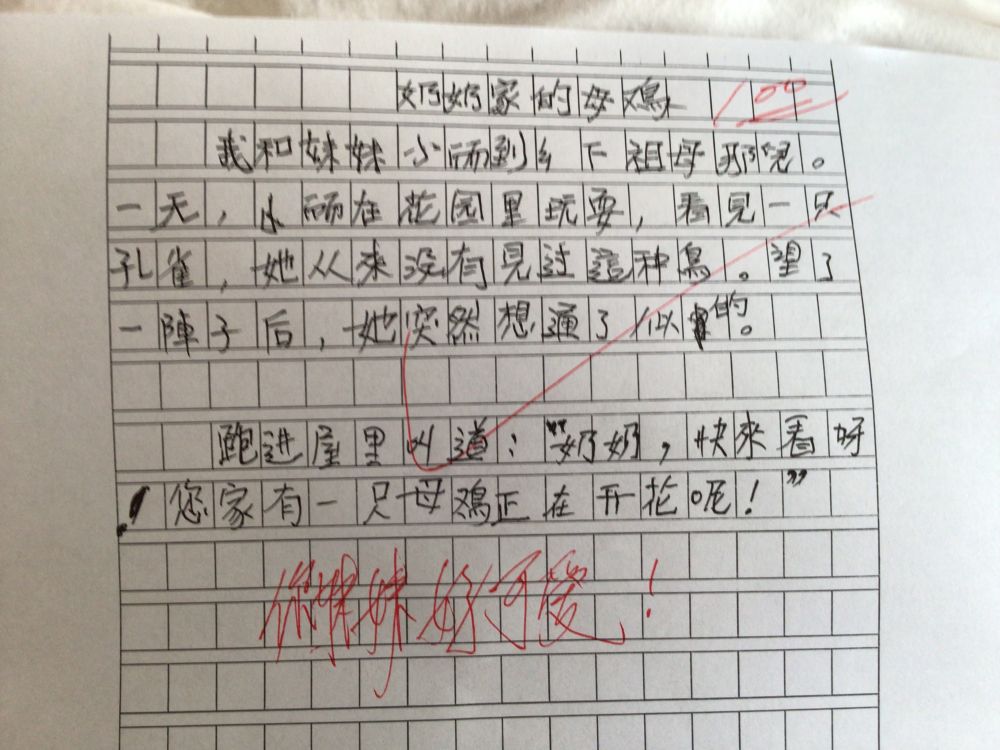 奶奶家的母鸡 100
我和妹妹小雨到乡下祖母那儿。
一天，小雨在花园里玩耍，看見一只
孔雀，她从來没有見过這种鳥。望了
一陣子后，她突然想通了似的。
跑进屋里叫道：“奶奶，快來看呀
！您家有一只母鸡正在开花呢！”
你妹妹好可愛！